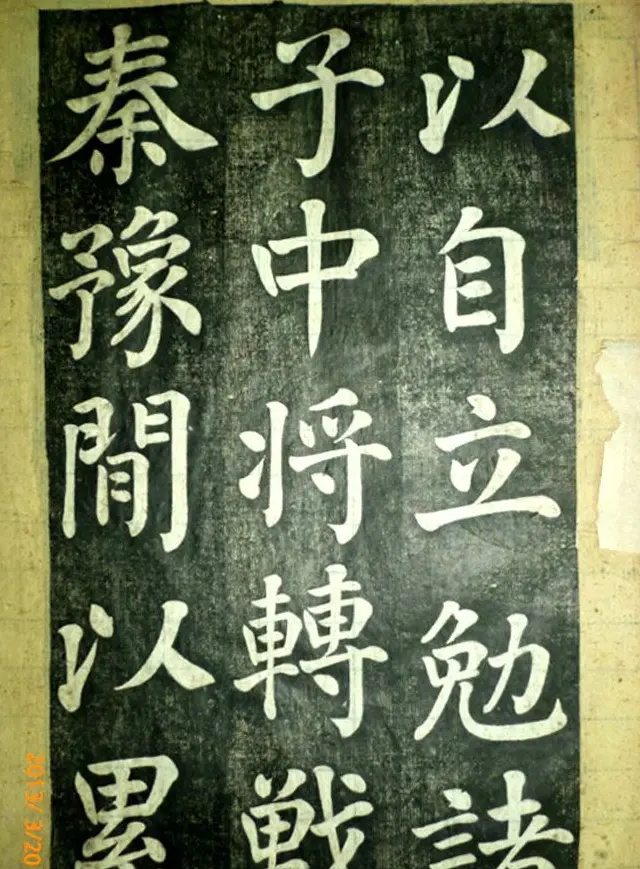 以自立勉諸
子中将轉戦
秦豫間以累
2013/3/20